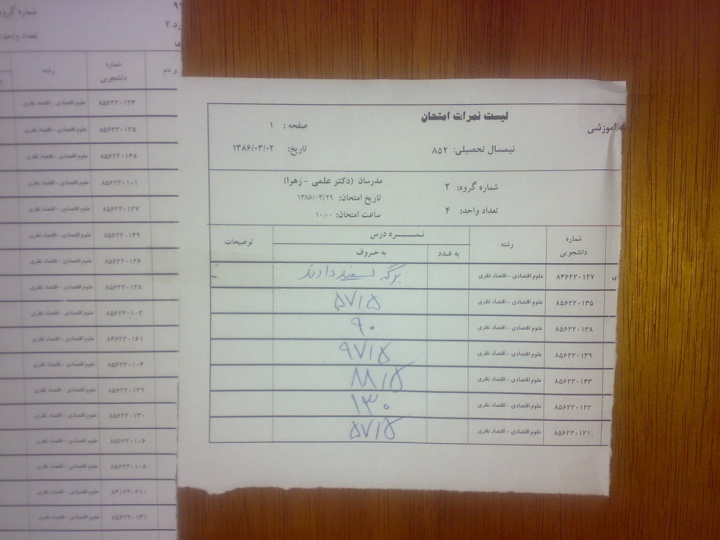 لیست نمرات امتحان
آموزشی
صفحه : ۱
نیمسال تحصیلی: ۸۵۲
تاریخ: ۱۳۸۶/۰۳/۰۲
شماره گروه: ۲
مدرسان (دکتر علمی - زهرا)
تعداد واحد: ۴
تاریخ امتحان: ۱۳۸۶/۰۳/۲۹
ساعت امتحان: ۱۰:۰۰
شماره دانشجویی رشته نمره درس توضیحات
به عدد به حروف
۸۴۶۲۲۰۱۲۷ علوم اقتصادی - اقتصاد نظری برگه سفید دارند
۸۵۶۲۲۰۱۳۵ علوم اقتصادی - اقتصاد نظری ۵۷/۵
۸۵۶۲۲۰۱۳۸ علوم اقتصادی - اقتصاد نظری ۹۰
۸۵۶۲۲۰۱۳۹ علوم اقتصادی - اقتصاد نظری ۹۷/۵
۸۵۶۲۲۰۱۴۳ علوم اقتصادی - اقتصاد نظری ۸۸/۵
۸۵۶۲۲۰۱۳۲ علوم اقتصادی - اقتصاد نظری ۱۳۰
۸۵۶۲۲۰۱۲۱ علوم اقتصادی - اقتصاد نظری ۵۷/۵
شماره گروه
تعداد واحد:
شماره دانشجویی رشته
۸۵۶۲۲۰۱۲۴ علوم اقتصادی - اقتصاد نظری
۸۵۶۲۲۰۱۲۵ علوم اقتصادی - اقتصاد نظری
۸۵۶۲۲۰۱۴۸ علوم اقتصادی - اقتصاد نظری
۸۵۶۲۲۰۱۰۱ علوم اقتصادی - اقتصاد نظری
۸۵۶۲۲۰۱۲۷ علوم اقتصادی - اقتصاد نظری
۸۵۶۲۲۰۱۴۹ علوم اقتصادی - اقتصاد نظری
۸۵۶۲۲۰۱۲۶ علوم اقتصادی - اقتصاد نظری
۸۵۶۲۲۰۱۲۸ علوم اقتصادی - اقتصاد نظری
۸۵۶۲۲۰۱۰۲ علوم اقتصادی - اقتصاد نظری
۸۴۶۲۲۰۱۶۱ علوم اقتصادی - اقتصاد نظری
۸۵۶۲۲۰۱۰۴ علوم اقتصادی - اقتصاد نظری
۸۵۶۲۲۰۱۲۹ علوم اقتصادی - اقتصاد نظری
۸۵۶۲۲۰۱۳۰ علوم اقتصادی - اقتصاد نظری
۸۵۶۲۲۰۱۰۶ علوم اقتصادی - اقتصاد نظری
۸۵۶۲۲۰۱۰۸ علوم اقتصادی - اقتصاد نظری
۸۳۱۲۲۰۲۱۰ علوم اقتصادی - اقتصاد نظری
۸۵۶۲۲۰۱۳۱ علوم اقتصادی - اقتصاد نظری